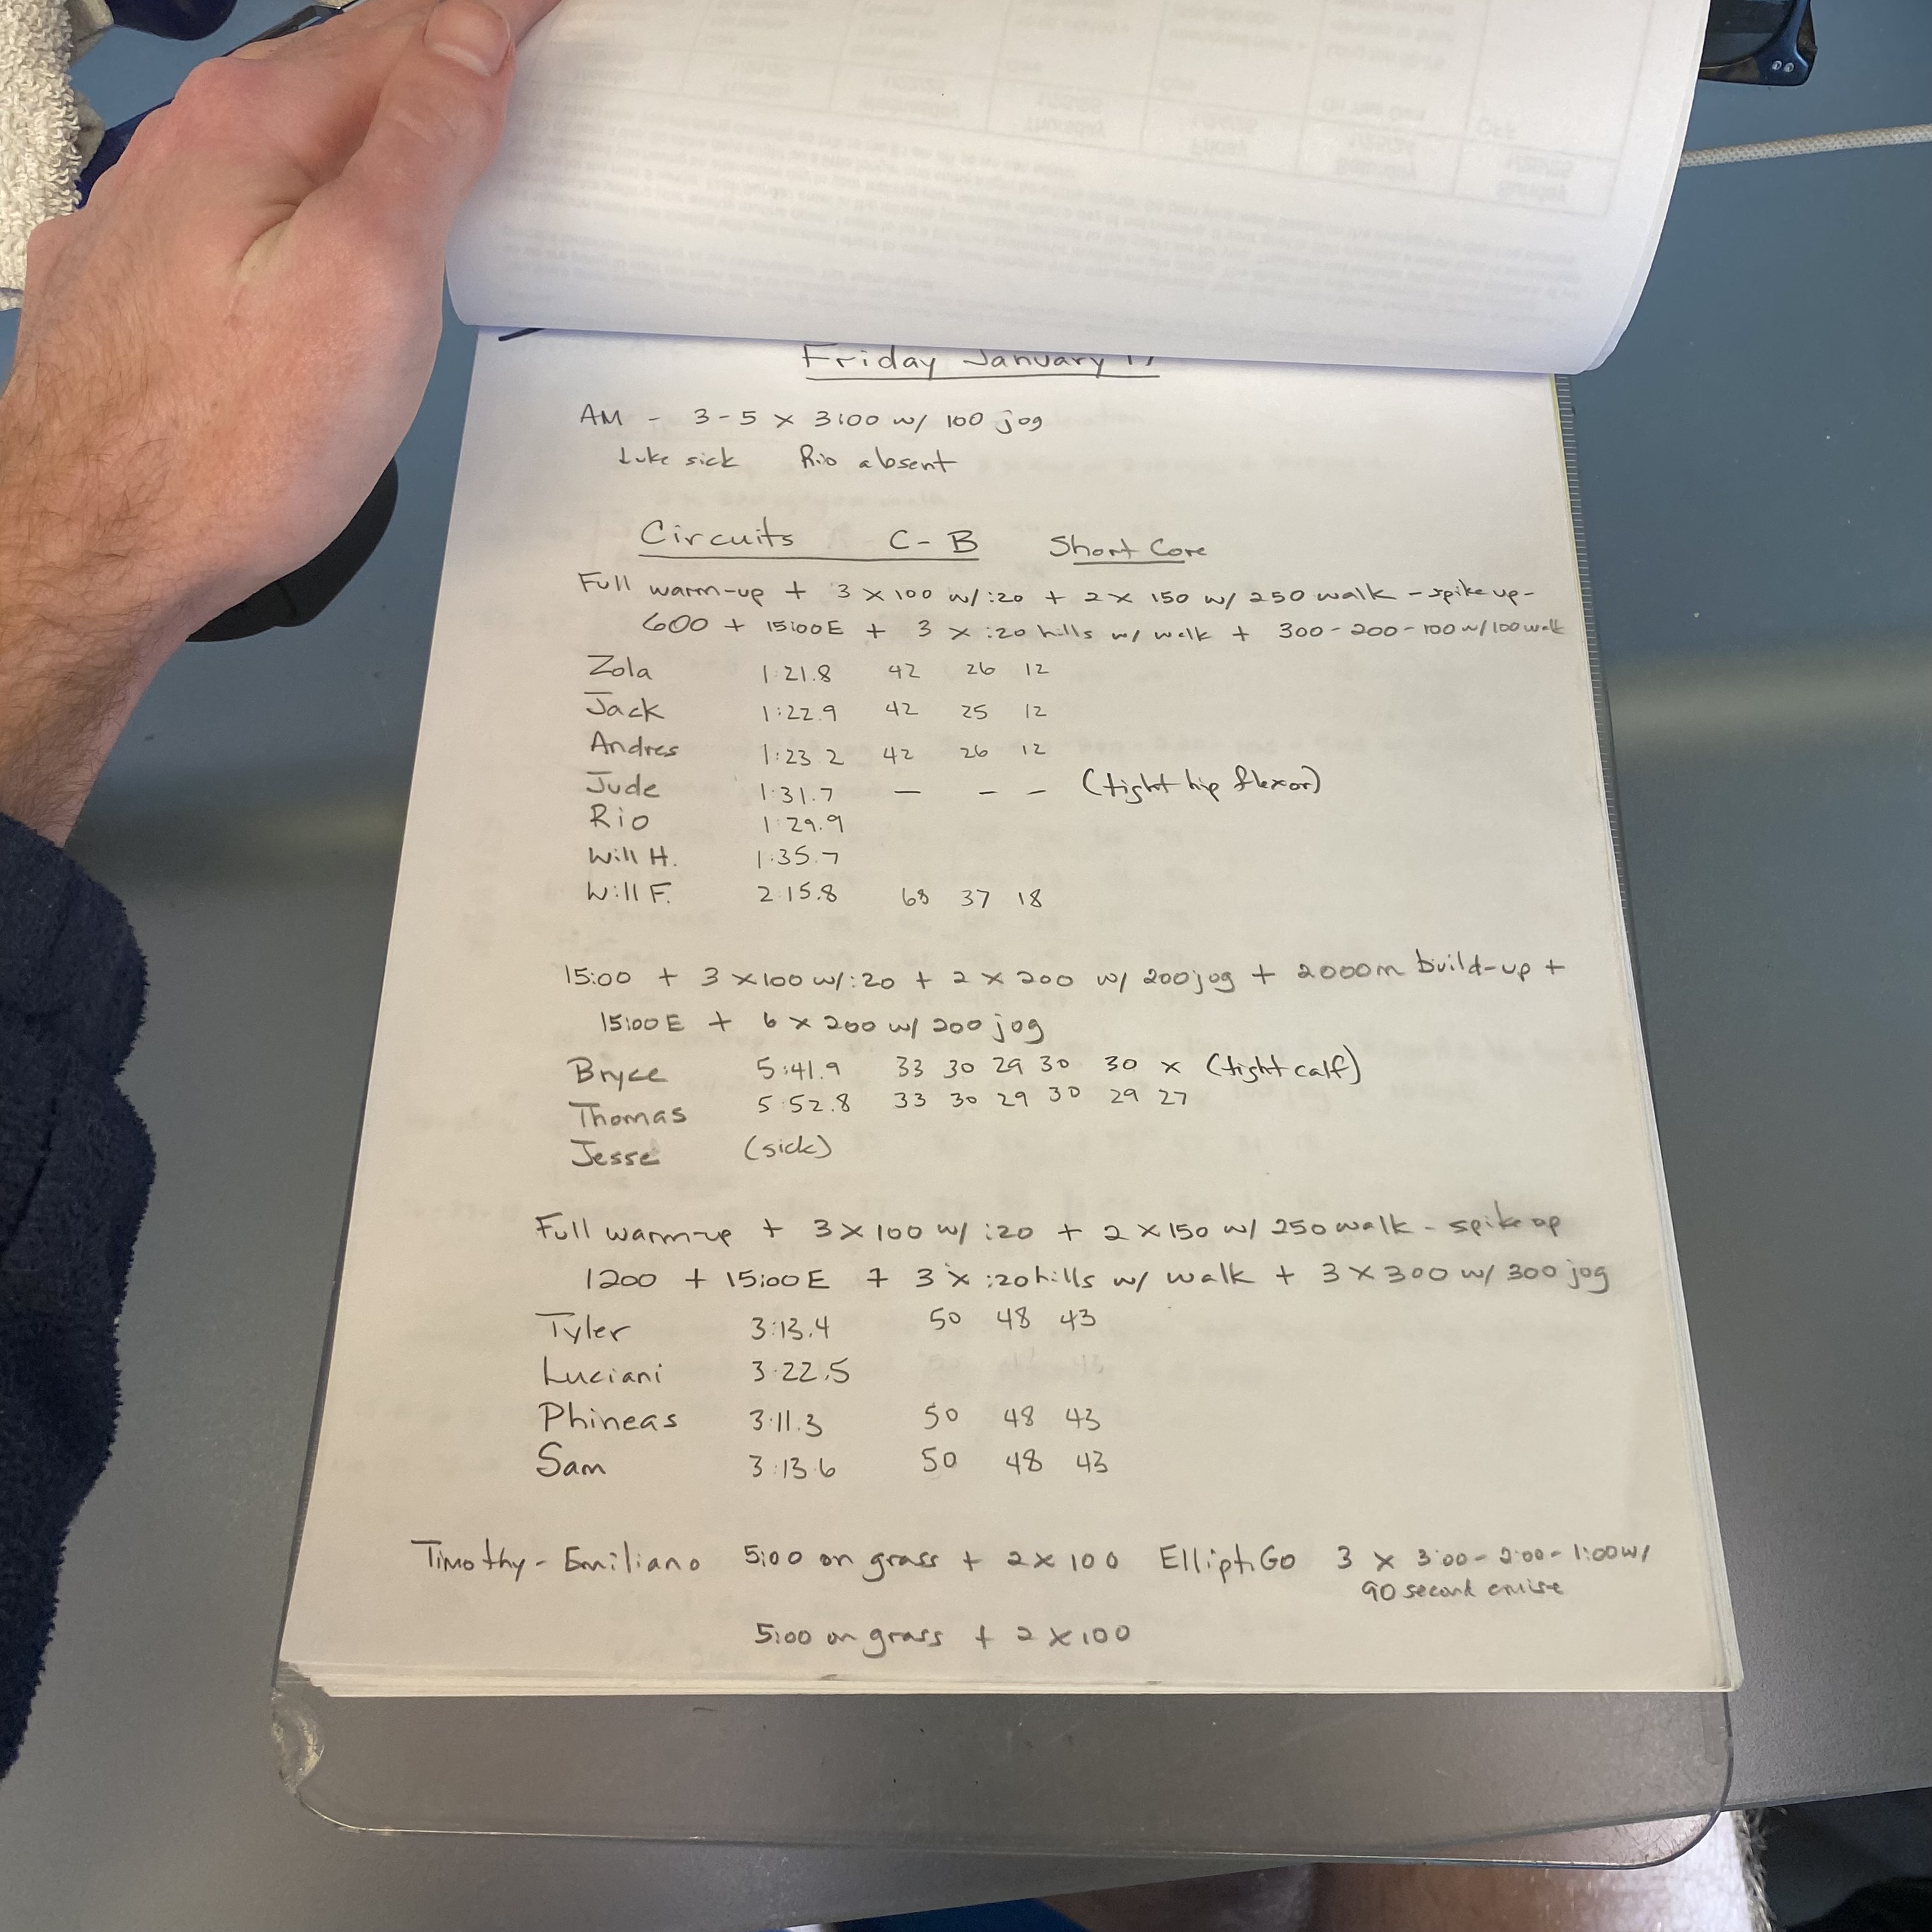 Friday January 17
AM - 3-5 x 3:00 w/ 100 jog
Luke sick Rio absent
Circuits C-B Short Core
Full warm-up + 3 x 100 w/ :20 + 2 x 150 w/ 250 walk - spike up -
600 + 15:00E + 3 x :20 hills w/ walk + 300-200-100 w/ 100 walk
Zola 1:21.8 42 26 12
Jack 1:22.9 42 25 12
Andres 1:23.2 42 26 12
Jude 1:31.7 — — — (tight hip flexor)
Rio 1:29.9
Will H. 1:35.7
Will F. 2:15.8 68 37 18
15:00 + 3 x 100 w/ :20 + 2 x 200 w/ 200 jog + 2000m build-up +
15:00 E + 6 x 200 w/ 200 jog
Bryce 5:41.9 33 30 29 30 30 x (tight calf)
Thomas 5:52.8 33 30 29 30 29 27
Jesse (sick)
Full warm-up + 3 x 100 w/ :20 + 2 x 150 w/ 250 walk - spike up
1200 + 15:00 E + 3 x :20 hills w/ walk + 3 x 300 w/ 300 jog
Tyler 3:13.4 50 48 43
Luciani 3:22.5
Phineas 3:11.3 50 48 43
Sam 3:13.6 50 48 43
Timothy - Emiliano 5:00 on grass + 2 x 100 ElliptiGo 3 x 3:00 - 2:00 - 1:00 w/
90 second cruise
5:00 on grass + 2 x 100